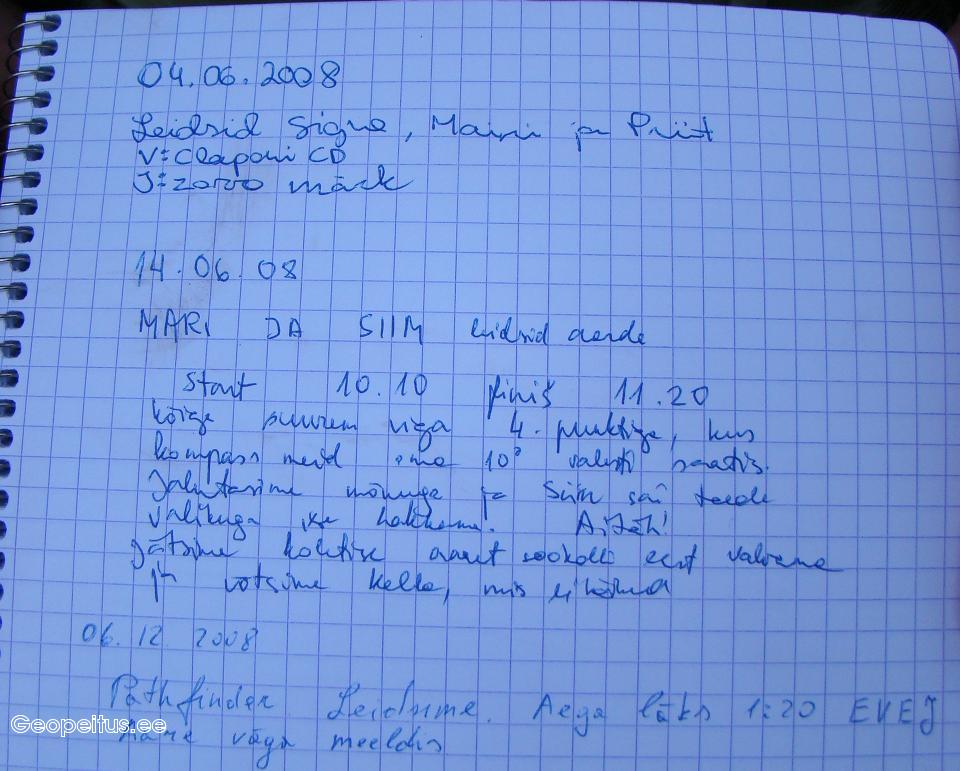 04.06.2008
Leidsid Signe, Maini ja Priit
V: Claponi CD
J: zorro mäck
14.06.08
MARI DA SIIM leidsid aarde
Start 10.10 finiš 11.20
kõige suurem viga 4. punktiga, kus
kompass meid oma 10° valesti saatis.
Jalutasime mõnuga ja Siim sai teede
valikuga ise hakkama. Aitäh!
Jätsime kohtise asemel eest valvama
ja võtsime kella, mis ei käinud
06.12 2008
Pathfinder Leidsime. Aega läks 1:20 EVEJ
väga meeldis
Geopeitus.ee